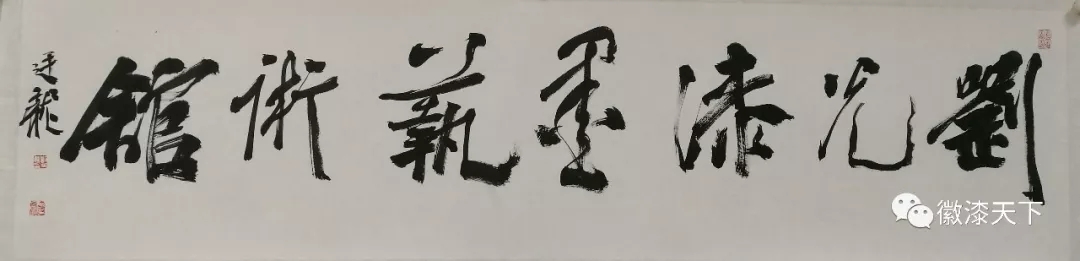 劉光漆墨藝術館
徽漆天下